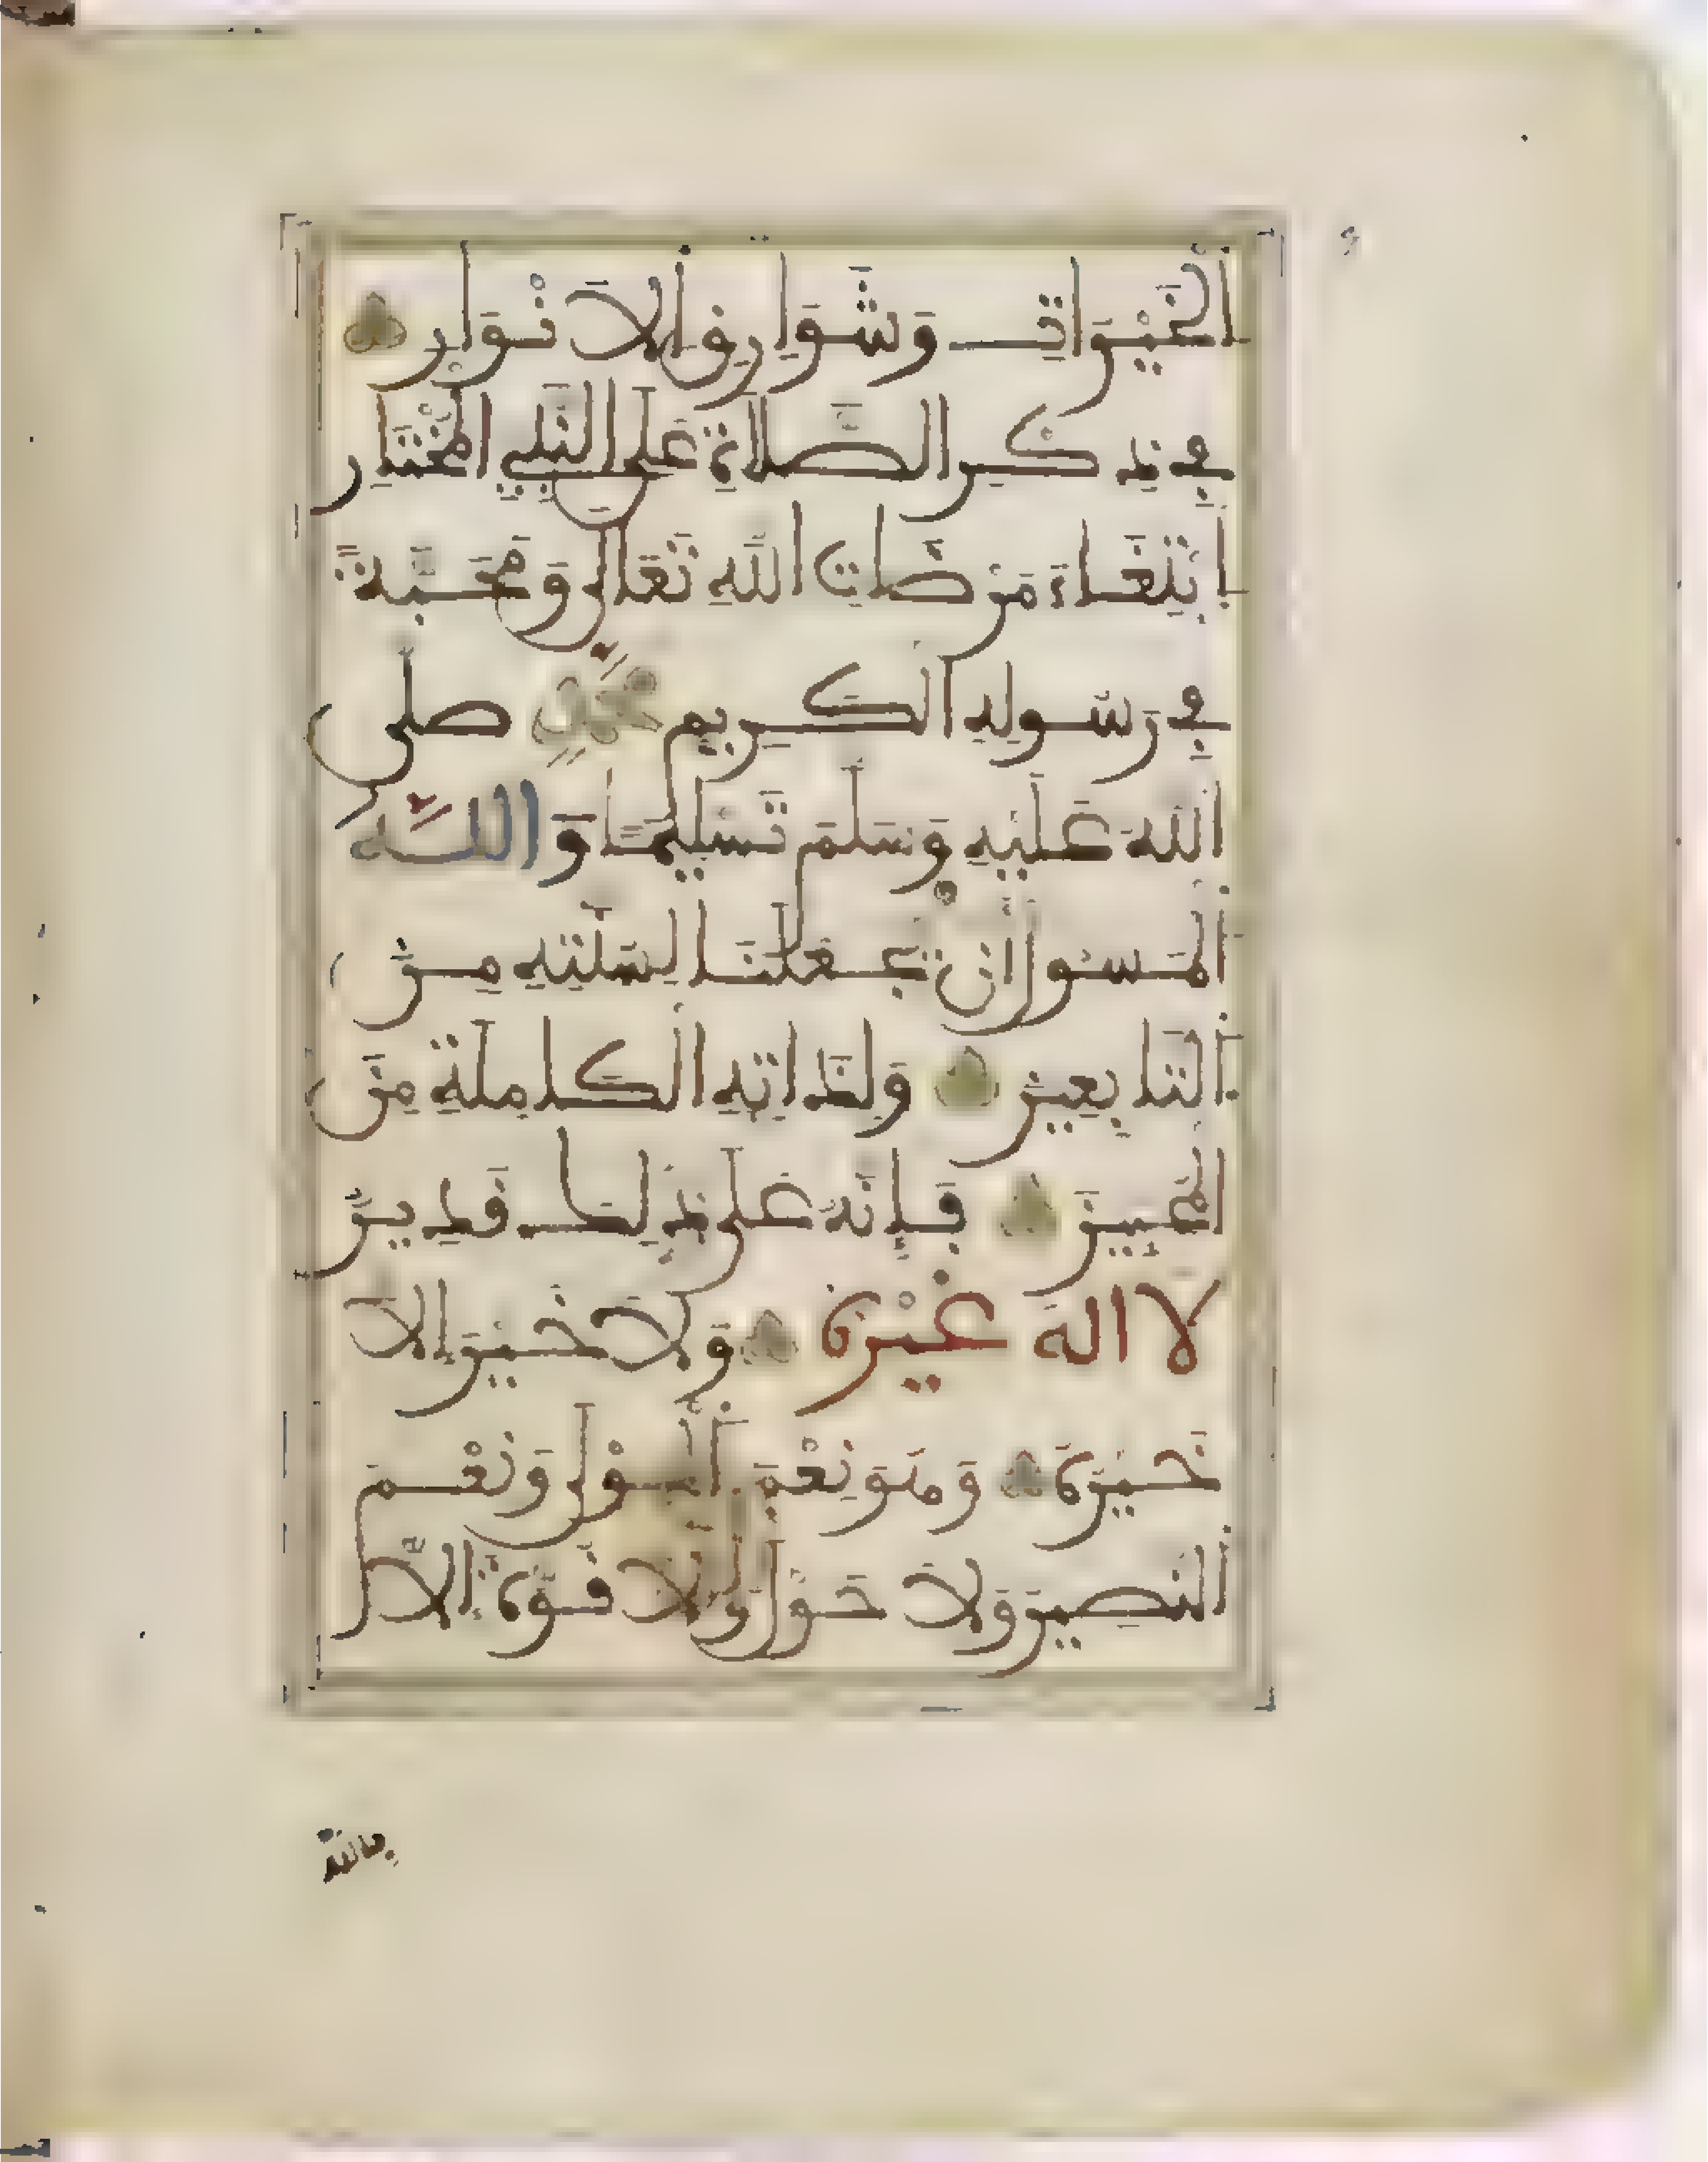 الخَيْرَاتِ وَشَوَارِقِ الاَنْوَارِ
في ذِكرِ الصَّلاةِ عَلى النَّبِيِ المُخْتَارِ
ابْتِغَاءَ مَرْضَاتِ اللهِ تَعَالى وَمَحَبَّةً
في رَسُولِهِ الكَرِيمِ مُحَمَّدٍ صلى
اللهُ عَلَيْهِ وَسَلَمَ تَسْلِيمًا وَاللَّهُ
المَسْوُلُ اَنْ يَجْعَلَنَا لِسُنَّتِهِ مِنَ
التَّابِعِينَ وَلِذَاتِهِ الكَامِلَةِ مِنَ
المُحِبِّينَ فَإِنَّهُ عَلى ذَلِكَ قَدِيرٌ
لا الهَ غَيْرُهُ وَلاَ خَيْرَ إلا
خَيْرُهُ وَهُوَ نِعْمَ الْمَوْلى وَنِعْمَ
النَّصِيرُ وَلاَ حَوْلَ وَلاَ قُوَّةَ إِلاَّ
بالله